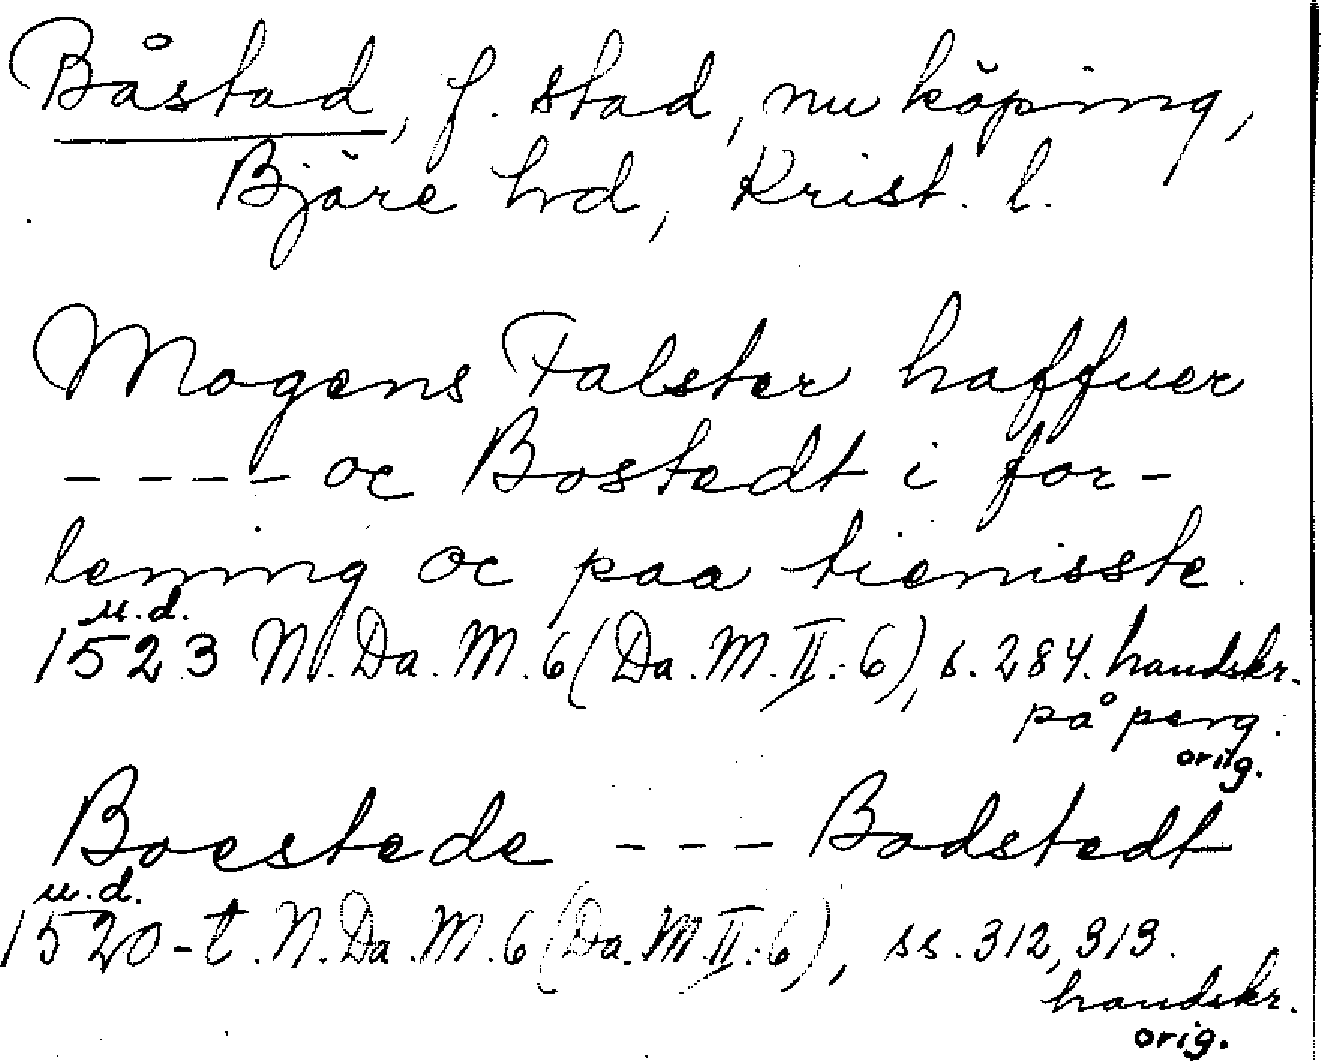 Båstad, f. stad, nu köping,
Bjäre hd, Krist. l.
Mogens Falster haffuer
- - - - oc Bostedt i for-
lening oc paa tienisste.
u.d.
1523 N. Da. M. 6 (Da. M. II: 6), s. 284. handskr.
på perg.
orig.
Boestede - - - Bodstedt
u.d.
1520-t. N. Da. M. 6 (Da. M. II: 6), ss. 312, 313.
handskr.
orig.